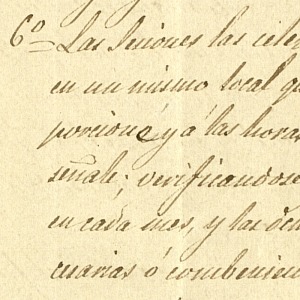 6º= Las Seciones las cele
en un mismo local q
porcione y á las horas
señale; verificandose
en cada mes, y las de
cesarias ó combenien